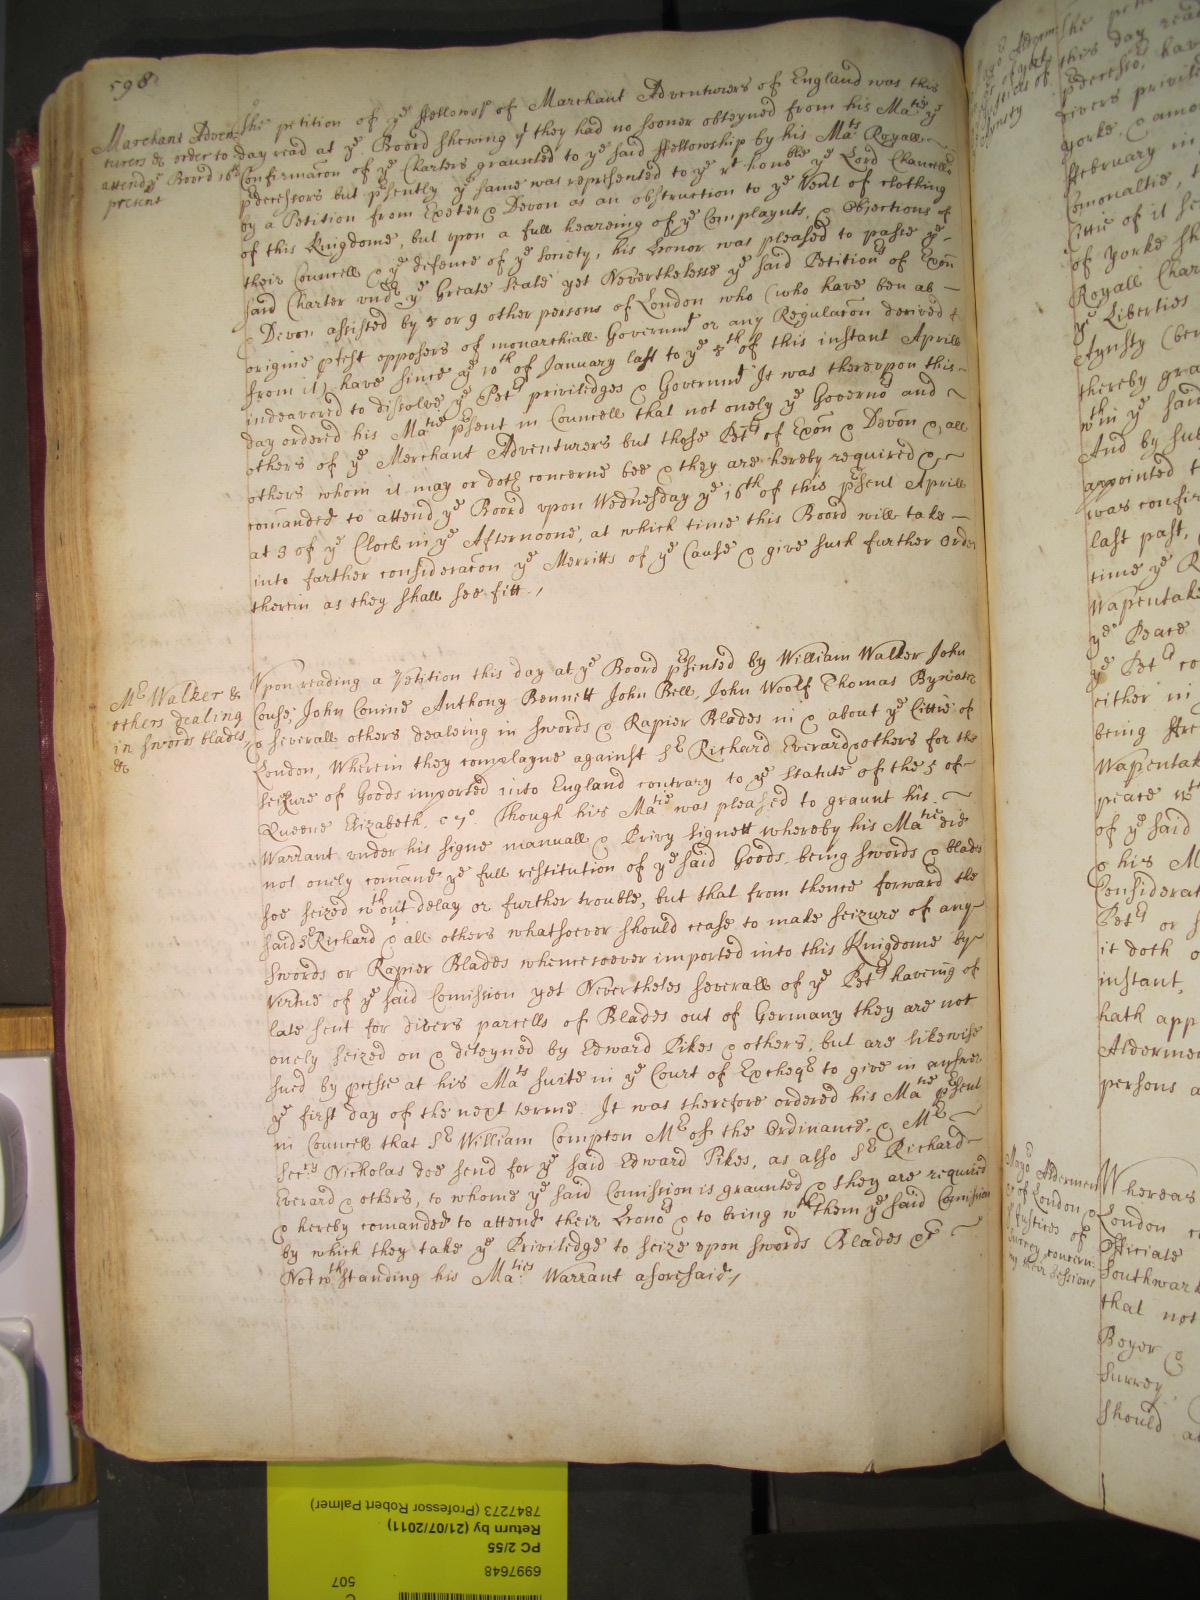 598
Marchant Adven-
turers &c order to
attend ye Board 16th
present
The petition of ye ffellowsp of Marchant Adventurers of England was this
day read at ye Board shewing yt they had no sooner obteyned from his Matie ye
Confirmacon of ye Charters graunted to ye said ffellowship by his Mats Royall
predecessors but psently ye same was represented to ye rt honoble ye Lord Chancello
by a Petition from Exeter & Devon as an obstruction to ye Vent of clothing
of this Kingdome, but upon a full heareing of ye Complaynts, & Objections of
their Councell & ye defence of ye society, his Honor was pleased to passe ye
said Charter undr ye Greate Seale yet Neverthelesse ye said Petitionrs of Exōn
& Devon assisted by 8 or 9 other persons of London who (who have ben ab
origine pfest opposers of monarchiall Governmt or any Regulacon derived
from it) have since ye 10th of January last to ye 8th of this instant Aprill
indeavored to dissolve ye Petrs priviledges & Governmt It was thereupon this
day ordered his Matie psent in Councell that not onely ye Governor and
others of ye Merchant Adventurers but those Petrs of Exōn & Devōn & all
others whom it may or doth concerne bee & they are hereby required &
comanded to attend ye Board upon Wednesday ye 16th of this psent Aprill
at 3 of ye Clock in ye Afternoone, at which time this Board will take
into farther consideracon ye Merritts of ye Cause & give such further Order
therein as they shall see fitt.,
Mr Walker &
others dealing
in swords blades,
&c
Upon reading a Petition this day at ye Board psented by William Walker John
Couse, John Conine Anthony Bennett John Bell, John Woolf Thomas
& severall others dealeing in swords & Rapier Blades in & about ye Cittie of
London, Wherein they complayne against Sr Richard Everard & others for the
seizure of Goods imported into England contrary to ye statute of the 5 of
Queene Elizabeth. c 7o. Though his Matie was pleased to graunt his
Warrant under his signe manuall & Privy signett whereby his Matie did
not onely comand ye full restitution of ye said Goods, being swords & blades
soe seized wthout delay or further trouble, but that from thence forward the
said Sr Richard & all others whatsoever should cease to make seizure of any
swords or Rapier Blades whencesoever imported into this Kingdome by
virtue of ye said Comission yet Nevertheles severall of ye Petrs haveing of
late sent for divers parcells of Blades out of Germany they are not
onely seized on & deteyned by Edward Pikes & others, but are likewise
sued by at his Mats suite in ye Court of Excheqr to give in answer
ye first day of the next terme. It was therefore ordered his Matie psent
in Councell that Sr William Compton Mr of the Ordinance, & Mr
Secry Nicholas doe send for ye said Edward Pikes, as also Sr Richard
Everard & others, to whome ye said Comission is graunted & they are required
& hereby comanded to attend their Honors & to bring wth them ye said Comission
by which they take ye Priviledge to seize upon swords Blades &c
Notwthstanding his Maties Warrant aforesaid,
Mayor Aldermen
& of London &
Justices of
Surrey concern-
ing their Sessions
Whereas
London
Officiate
Southwark
that not
Boyer &
Surrey
should
yorke
ffebruary in
Comonaltie,
Cittie of it
of yorke
Royall Char
ye Liberties
Aynsty
thereby gra
wthin ye said
And by
appointed
was confir
last past,
time ye
Wapentake
ye Peace
ye Petrs
either in
being
Wapentak
peace
of ye said
& his M
Considerat
Petrs or
it doth
instant,
hath app
Aldermen
persons a
507
6997648
PC 2/55
Return by (21/07/2011)
7847273 (Professor Robert Palmer)